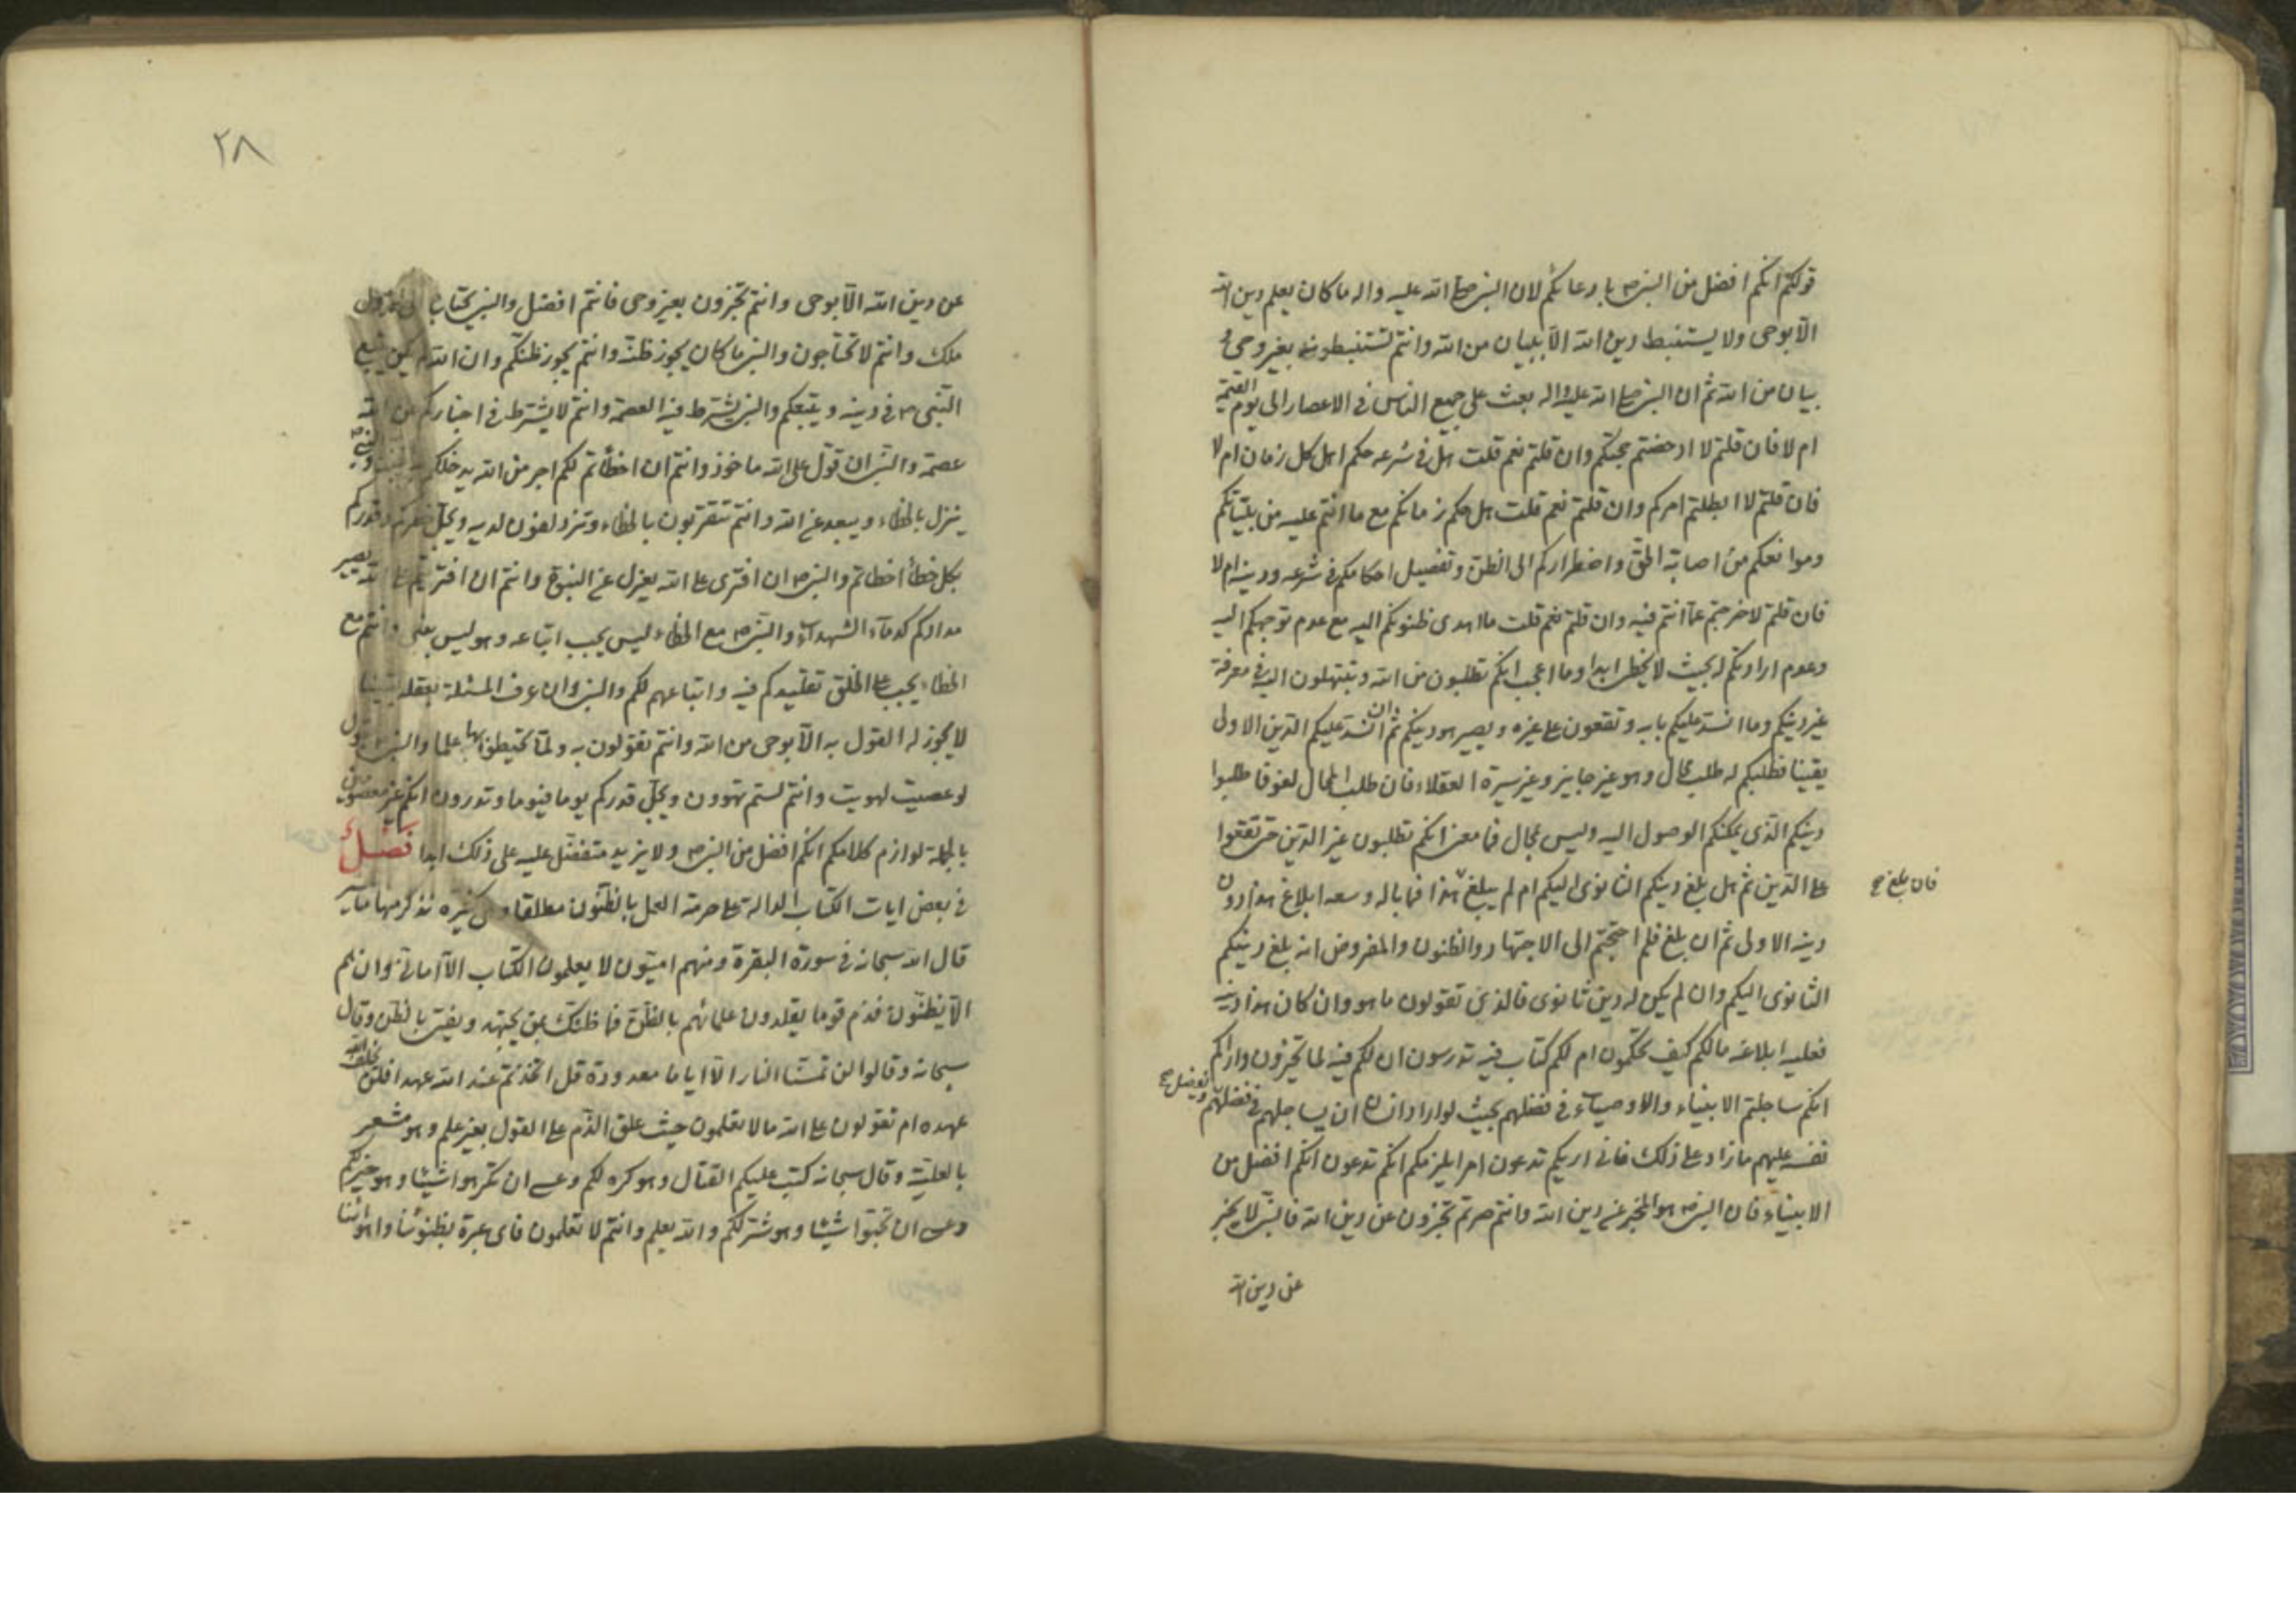 قولكم انكم افضل من النبي ص بادعائكم لان النبي صلى الله عليه واله ما كان يعلم دين الله
الا بوحى ولا يستنبط دين الله الا ببيان من الله وانتم تستنبطونه بغير وحى و
بيان من الله ثم ان النبي صلى الله عليه واله بعث على جميع الناس فى الاعصار الى يوم القيمة
ام لا فان قلتم لا ادحضتم حجتكم وان قلتم نعم قلت هل فى شرعه حكم اهل كل زمان ام لا
فان قلتم لا ابطلتم امركم وان قلتم نعم قلت هل حكم زمانكم مع ما انتم عليه من بلياتكم
وموانعكم من اصابة الحق واضطراركم الى الظن وتفصيل احكامكم فى شرعه ودينه ام لا
فان قلتم لا خرجتم عما انتم فيه وان قلتم نعم قلت ما اهدى ظنونكم اليه مع عدم توجهكم اليه
وعدم ارادتكم له بحيث لا يخطى ابدا وما اعجب انكم تطلبون من الله وتبتهلون اليه فى معرفة
غير دينكم وما انسد عليكم بابه وتقعون على غيره ويصير هو دينكم ثم ان انسد عليكم الدين الاولى
يقينا فطلبكم له طلب محال وهو غير جايز وغير سيرة العقلاء فان طلب المحال لغو فاطلبوا
دينكم الذى يمكنكم الوصول اليه وليس بمحال فما معنى انكم تطلبون غير الدين حتى تقعوا
على الدين ثم هل بلغ دينكم الثانوى اليكم ام لم يبلغ هذا فما باله وسعه ابلاغ هذا دون
فان بلغ صح
دينه الاولى ثم ان بلغ فلم احتجتم الى الاجتهاد والظنون والمفروض انه بلغ دينكم
الثانوى اليكم وان لم يكن له دين ثانوى فالذى تقولون ما هو وان كان هذا دينه
فعليه ابلاغه مالكم كيف تحكمون ام لكم كتاب فيه تدرسون ان لكم فيه لما تخيرون واراكم
انكم ساجلتم الانبياء والاوصياء فى فضلهم بحيث لو اراد ان يساجلهم فى فضلهم ويفضل صح
نفسه عليهم ما زاد على ذلك فانى اريكم تدعون امرا يلزمكم انكم تدعون انكم افضل من
الانبياء فان النبي ص هو المخبر عن دين الله وانتم صرتم تخبرون عن دين الله فالنبي لا يخبر
عن دين الله
٢٨
عن دين الله الا بوحى وانتم تخبرون بغير وحى فانتم افضل والنبي يحتاج الى نزول
ملك وانتم لا تحتاجون والنبي ما كان يجوز ظنه وانتم يجوز ظنكم وان الله لم يكن يتبع
النبى ص فى دينه ويتبعكم والنبي يشترط فيه العصمة وانتم لا يشترط فى اخباركم عن الله
عصمة والنبي ان تقول على الله ماخوذ وانتم ان اخطأتم لكم اجر من الله يدخلكم به الجنة والنبي ص
ينزل بالخطاء ويبعد عن الله وانتم تتقربون بالخطاء وتزدلفون لديه ويجل قدركم
بكل خطأ اخطاتم والنبي ص ان افترى على الله يعزل عن النبوة وانتم ان افتريتم على الله يصير
مدادكم كدماء الشهداء والنبي ص مع الخطاء ليس يجب اتباعه وهو ليس بغنى وانتم مع
الخطاء يجب على الخلق تقليدكم فيه واتباعهم لكم والنبي وان عرف المسئلة بعقله يقينا
لا يجوز له القول به الا بوحى من الله وانتم تقولون به ولما تحيطوا بها علما والنبي ص يقول
لو عصيت لهويت وانتم لستم تهوون ويجل قدركم يوما فيوما وتدرون انكم غير معصومين
بالجملة لوازم كلامكم انكم افضل من النبي ص ولا يزيد متفضل عليه على ذلك ابدا فصل
فى بعض ايات الكتاب الدالة على حرمة العمل بالظنون مطلقا وهى كثيرة نذكر منها مائة
قال الله سبحانه فى سورة البقرة ومنهم اميون لا يعلمون الكتاب الا امانى وان هم
الا يظنون فذم قوما يقلدون علمائهم بالظن فما ظنك بمن يجتهد ويفتى بالظن وقال
سبحانه وقالوا لن تمسنا النار الا اياما معدودة قل اتخذتم عند الله عهدا فلن يخلف الله
عهده ام تقولون على الله ما لا تعلمون حيث علق الذم على القول بغير علم وهو مشعر
بالعلية وقال سبحانه كتب عليكم القتال وهو كره لكم وعسى ان تكرهوا شيئا وهو خير لكم
وعسى ان تحبوا شيئا وهو شر لكم والله يعلم وانتم لا تعلمون فاى عبرة بظنوننا واهوائنا